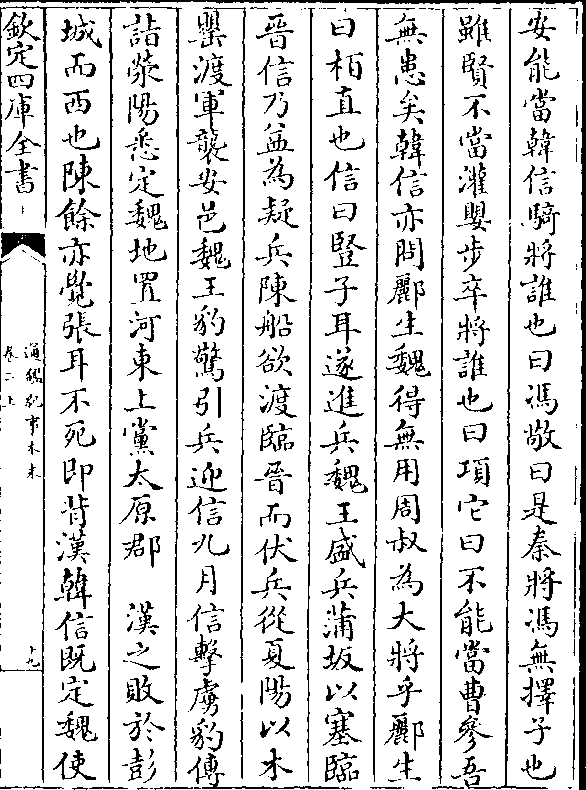 安能當韓信騎將誰也曰馮敬曰是秦將馮無擇子也
雖賢不當灌嬰步卒將誰也曰項它曰不能當曹參吾
無患矣韓信亦問酈生魏得無用周叔為大將乎酈生
曰栢直也信曰豎子耳遂進兵魏王盛兵蒲坂以塞臨
晉信乃益為疑兵陳船欲渡臨晉而伏兵從夏陽以木
罌渡軍襲安邑魏王豹驚引兵迎信九月信擊虜豹傳
詣滎陽悉定魏地置河東上黨太原郡　漢之敗於彭
城而西也陳餘亦覺張耳不死即背漢韓信既定魏使
欽定四庫全書
通鑑紀事本末
卷二上
十九